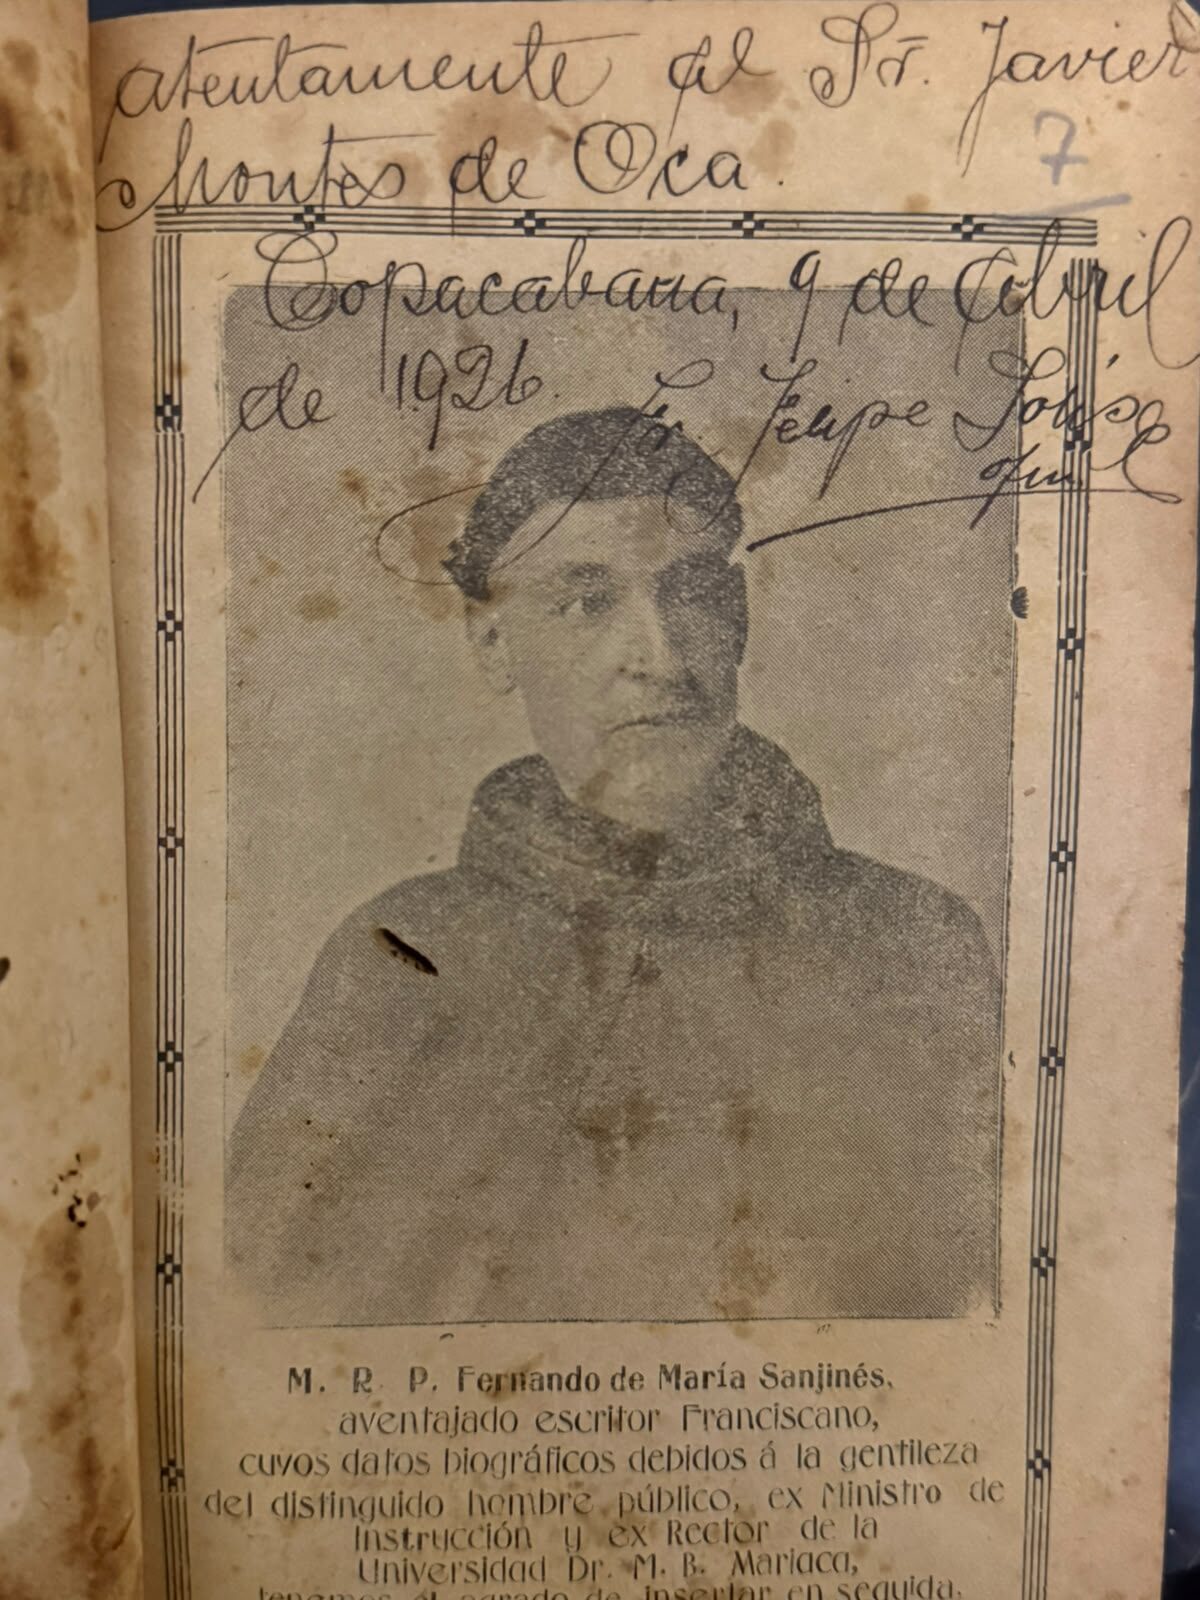 Atentamente al Sr. Javier
Montes de Oca.
7
Copacabana, 9 de Abril
de 1926.
Fr. Felipe Solís
ofm
M. R. P. Fernando de María Sanjinés,
aventajado escritor Franciscano,
cuyos datos biográficos debidos á la gentileza
del distinguido hombre público, ex Ministro de
Instrucción y ex Rector de la
Universidad Dr. M. B. Mariaca,
tenemos el agrado de insertar en seguida.